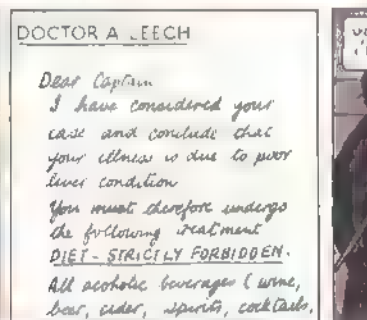 DOCTOR A. LEECH
Dear Captain
I have considered your
case and conclude that
your illness is due to poor
liver condition
You must therefore undergo
the following treatment
DIET - STRICTLY FORBIDDEN.
All alcoholic beverages (wine,
beer, cider, spirits, cocktails,